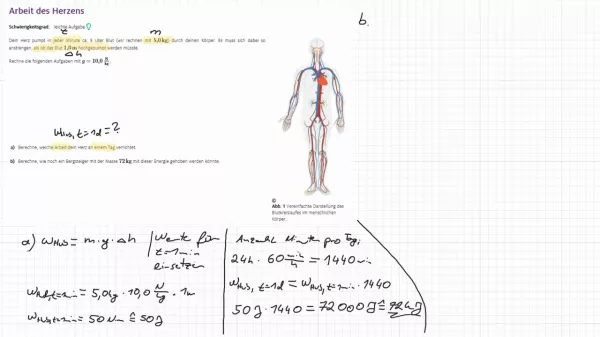 Arbeit des Herzens
Schwierigkeitsgrad: leichte Aufgabe
t m
Dein Herz pumpt in jeder Minute ca. 5 Liter Blut (wir rechnen mit 5,0 kg) durch deinen Körper. Es muss sich dabei so
anstrengen, als ob das Blut 1,0 m hochgepumpt werden müsste.
Δh
Rechne die folgenden Aufgaben mit g = 10,0 N/kg.
W_Hub, t=1d = ?
a) Berechne, welche Arbeit dein Herz an einem Tag verrichtet.
b) Berechne, wie hoch ein Bergsteiger mit der Masse 72 kg mit dieser Energie gehoben werden könnte.
b.
©
Abb. 1 Vereinfachte Darstellung des
Blutkreislaufes im menschlichen
Körper
a) W_Hub = m · g · Δh | Werte für
t = 1 min
einsetzen
W_Hub, t=1min = 5,0 kg · 10,0 N/kg · 1 m
W_Hub, t=1min = 50 Nm ≙ 50 J
Anzahl Minuten pro Tag:
24 h · 60 min/h = 1440 min
W_Hub, t=1d = W_Hub, t=1min · 1440
50 J · 1440 = 72000 J ≙ 72 kJ